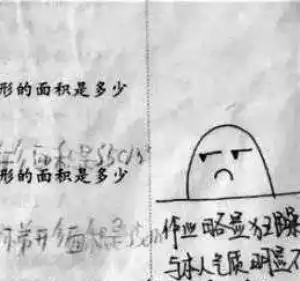 形的面积是多少
面积是
形的面积是多少
是
作业略显狂躁
与本人气质明显不